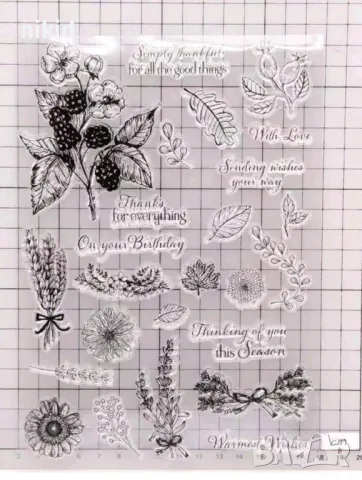 nikid
Simply thankful
for all the good things
With Love
Sending wishes
your way
Thanks
for everything
On your Birthday
Thinking of you
this Season
Warmest Wishes
1cm
3 5 6 7 8 12 13 14 15 16 17 18 19 20